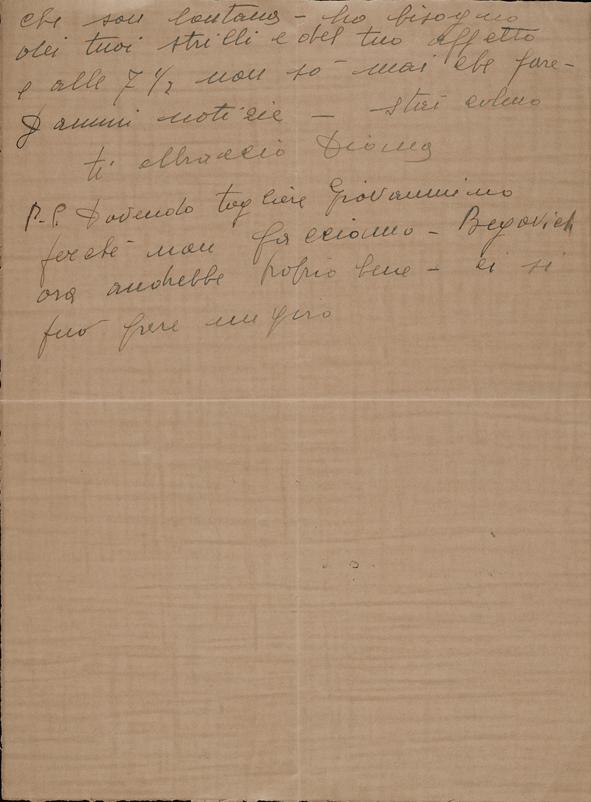 che son lontana - ho bisogno
dei tuoi strilli e del tuo affetto
e alle 7 1/2 non so mai che fare -
Dammi notizie - stai calmo
ti abbraccio Diana
P.S. Dovendo togliere Giovannino
perché non facciamo - Begovich
ora andrebbe proprio bene - ci si
può fare un giro